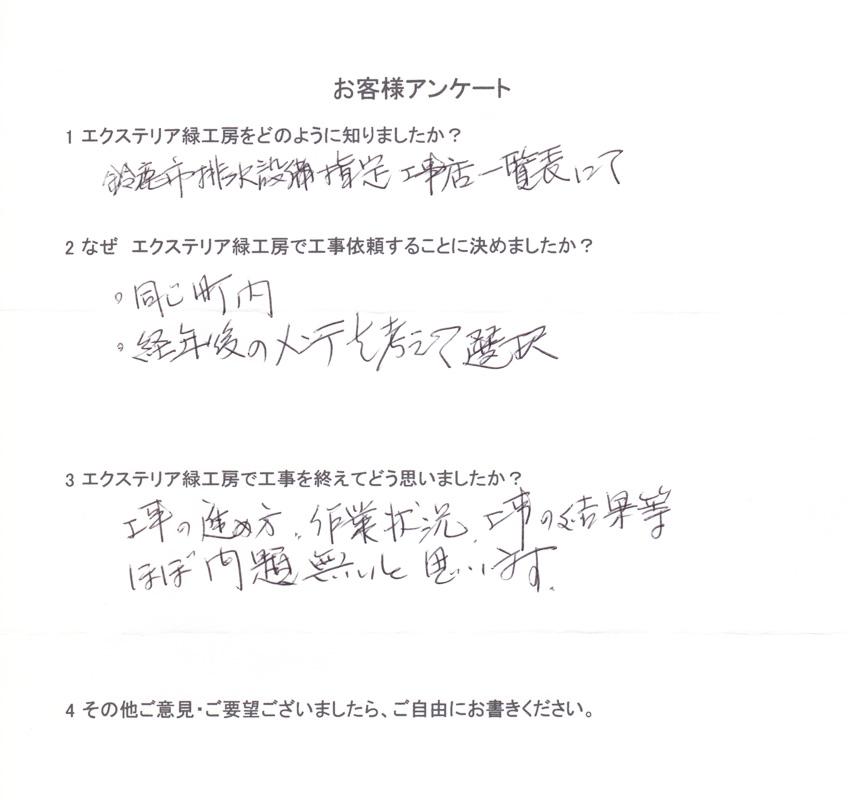 お客様アンケート
1 エクステリア緑工房をどのように知りましたか？
鈴鹿市排水設備指定工事店一覧表にて
2 なぜ エクステリア緑工房で工事依頼することに決めましたか？
。同じ町内
。経年後のメンテも考えて選択
3 エクステリア緑工房で工事を終えてどう思いましたか？
工事の進め方、作業状況、工事の結果等
ほぼ問題無いと思います。
4 その他ご意見・ご要望ございましたら、ご自由にお書きください。